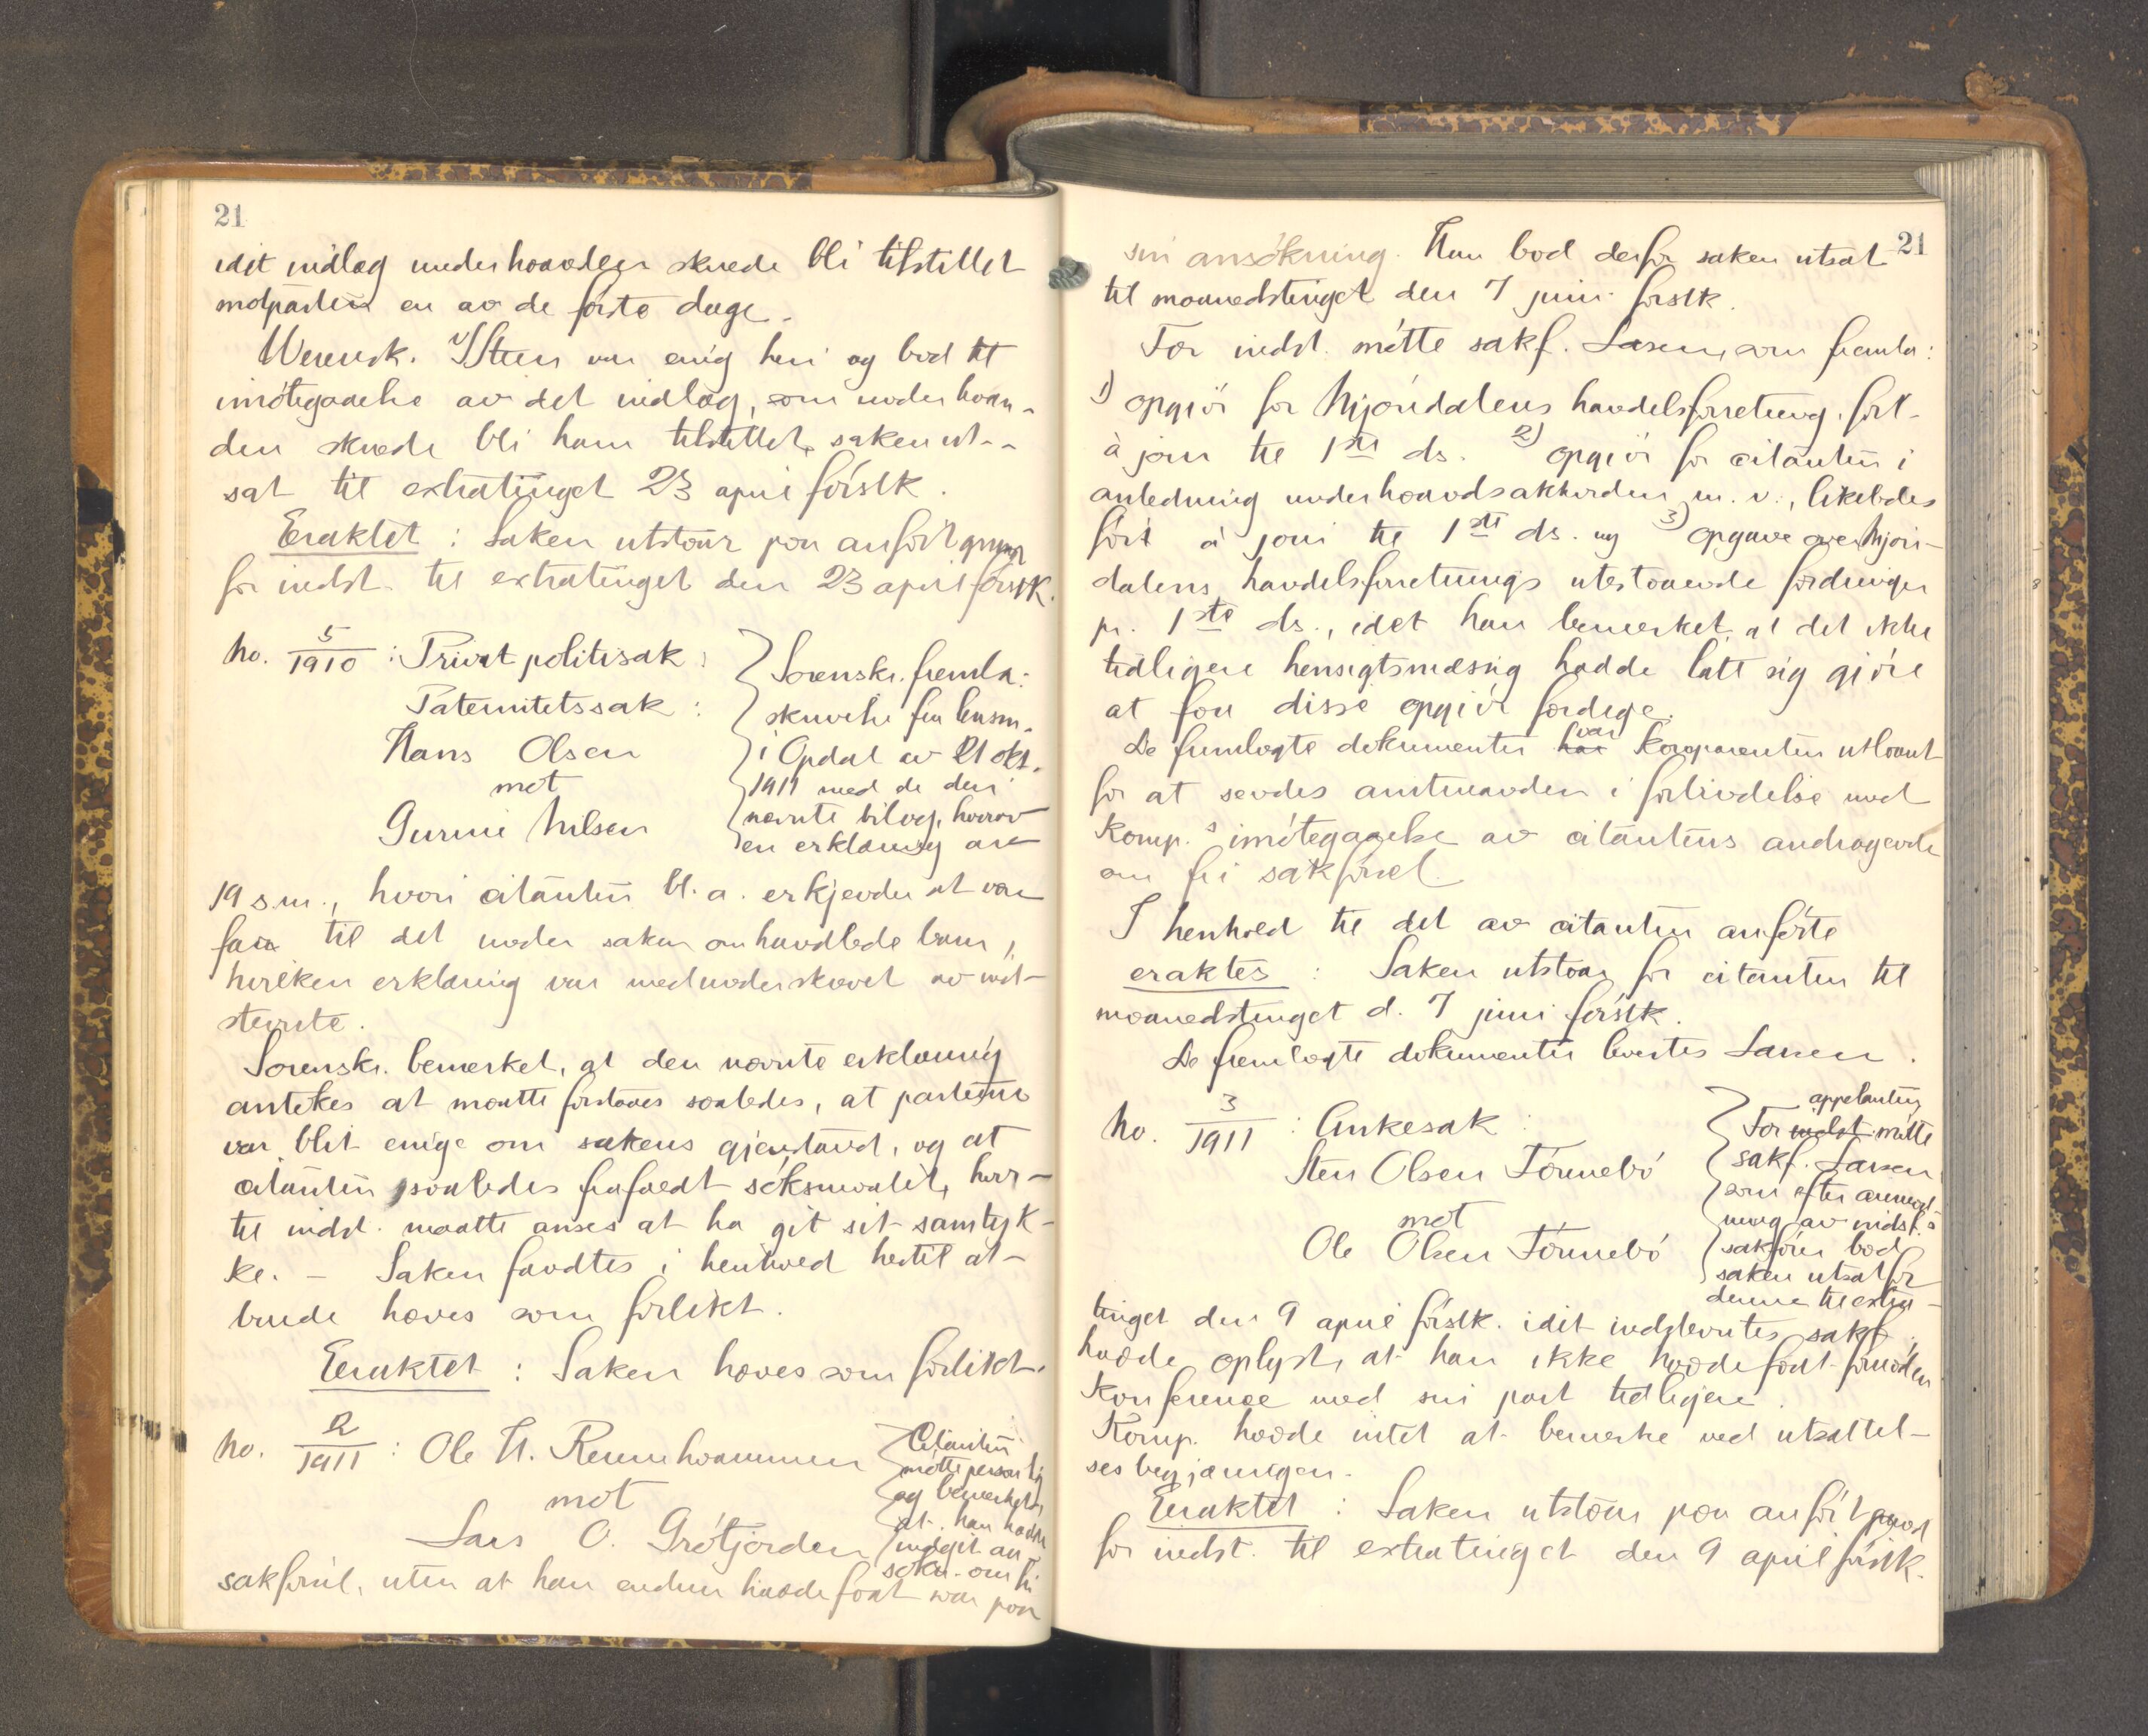 21
idet indlæg underhaanden skulde bli tilstillet
motparten en av de første dage.
Werensk. v/Steen var enig heri og bad til
imøtegaaelse av det indlæg, som underhaan-
den skulde bli ham tilstillet, saken ut-
sat til extratinget 23 april førstk.
Eraktet : Saken utstaar paa anført grund
for indst. til extratinget den 23 april førstk.
No. 5/1910 : Privat politisak :
Paternitetssak :
Hans Olsen
mot
Gunni Nilsen
Sorenskr. fremla:
skrivelse fra lensm.
i Opdal av 21 okt.
1911 med de deri
nævnte bilag, hvorav
en erklæring av
19 s.m., hvori citanten bl. a. erkjender at være
far til det under saken omhandlede barn,
hvilken erklæring var medunderskrevet av ind-
stevnte.
Sorenskr. bemerket, at den nævnte erklæring
antokes at maatte forstaaes saaledes, at parterne
var blit enige om sakens gjenstand, og at
citanten saaledes frafaldt søksmaalet, hvor-
til indst. maatte anses at ha git sit samtyk-
ke. – Saken fandtes i henhold hertil at
burde hæves som forlikt.
Eraktet : Saken hæves som forlikt.
No. 2/1911 : Ole H. Rennhammen
mot
Lars O. Grøtjorden
Citanten
møtte personlig
og bemerket
at han hadde
indgit an-
søkn. om fri
sakførsel, uten at han endnu hadde faat svar paa
21
sin ansøkning. Han bad derfor saken utsat
til maanedstinget den 7 juni førstk.
For indst. møtte sakf. Larsen, som fremla:
1) opgjør for Mjøndalens handelsforretning, ført
à jour til 1ste ds. 2) opgjør for citanten i
anledning underhaandsakkorden m. v., likeledes
ført à jour til 1ste ds. og 3) opgave over Mjøn-
dalens handelsforretnings utestaaende fordringer
pr. 1ste ds., idet han bemerket, at det ikke
tidligere hensigtsmæssig hadde latt sig gjøre
at faa disse opgjør færdige.
De fremlagte dokumenter har var komparenten utlaant
for at sendes amtmanden i forbindelse med
komp.s imøtegaaelse av citantens andragende
om fri sakførsel.
I henhold til det av citanten anførte
eraktes : Saken utstaar for citanten til
maanedstinget d. 7 juni førstk.
De fremlagte dokumenter levertes Larsen.
No. 3/1911 : Ankesak :
Sten Olsen Tønnebø
mot
Ole Olsen Tønnebø
appelanten
For indst møtte
sakf. Larsen
som efter anmod-
ning av indst.s
sakfører bad
saken utsat for
denne til extra-
tinget den 9 april førstk. idet indstevntes sakf.
hadde oplyst, at han ikke hadde faat fornøden
konference med sin part tidligere.
Komp. hadde intet at bemerke ved utsættel-
ses begjæringen.
Eraktet : Saken utstaar paa anført grund
for indst. til extratinget den 9 april førstk.